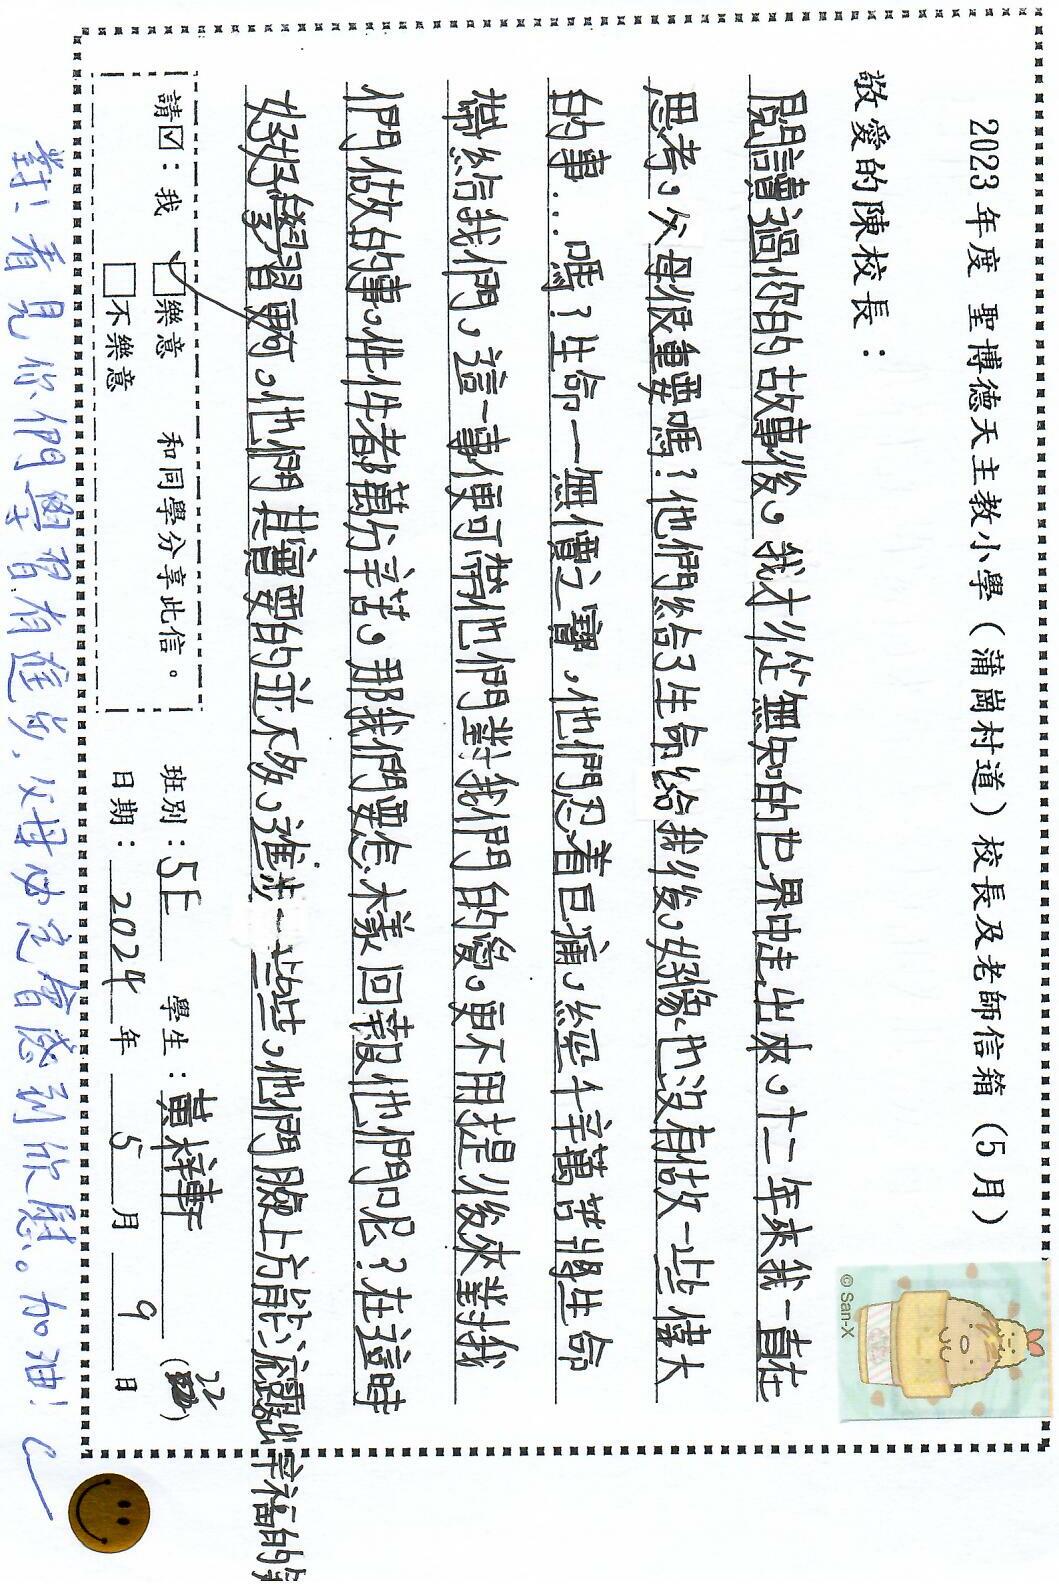 2023 年度 聖博德天主教小學（蒲崗村道）校長及老師信箱（5 月）
© San-X
敬愛的陳校長：
閱讀過你的故事後，我才從無知的世界中走出來，十二年來我一直在
思考，父母很重要嗎？他們給了生命給我後，好像也沒有做一些偉大
的事…嗎？生命一無價之寶，他們忍着巨痛，經千辛萬苦將生命
帶給我們，這一事便可帶他們對我們的愛。更不用提後來對我
們做的事，件件都萬分辛苦，那我們要怎樣回報他們呢？在這時
好好學習啊。他們其實要的並不多，進步一些些，他們臉上方能流露出幸福的
請☑：我 ☑樂意 和同學分享此信。
□不樂意
班別：5E 學生：黃梓軒 (22)
日期：2024 年 5 月 9 日
對！看見你們學習有進步，父母必定會感到欣慰。加油！